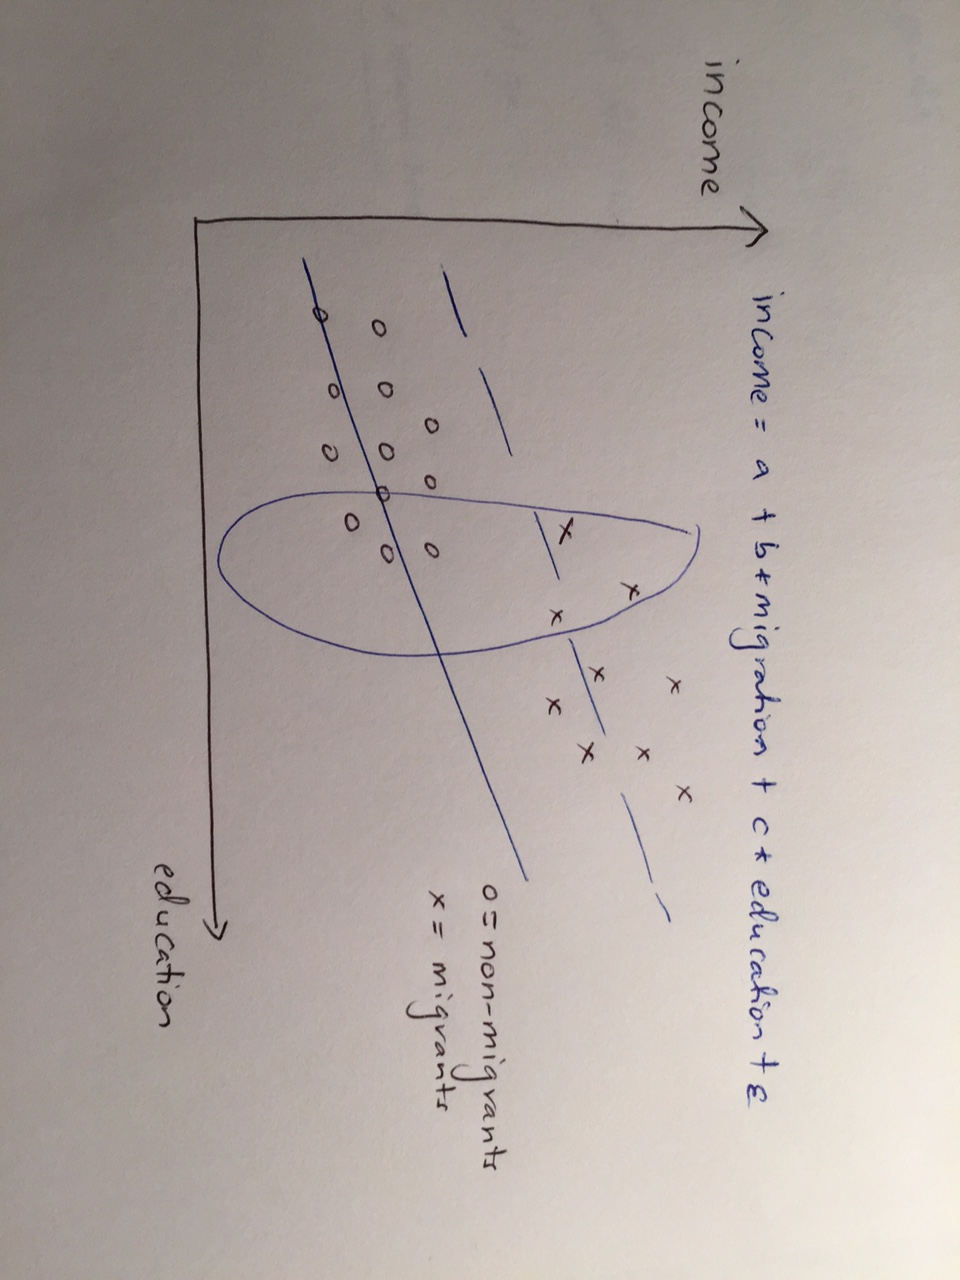 income = a + b * migration + c * education + ε
income
o = non-migrants
x = migrants
education